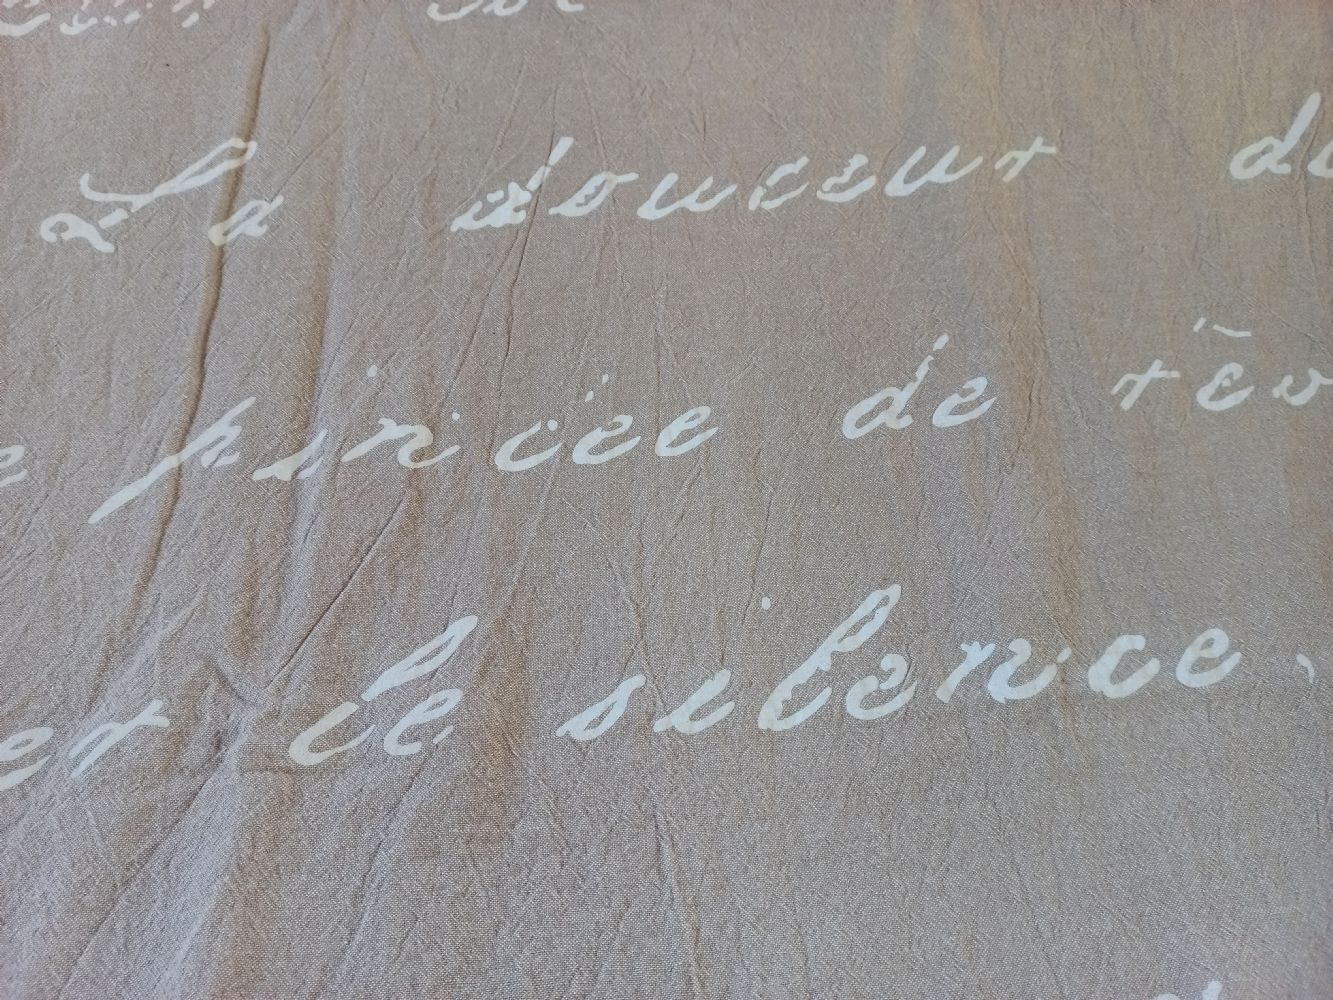 La douceur du
pincée de rêv
et le silence,